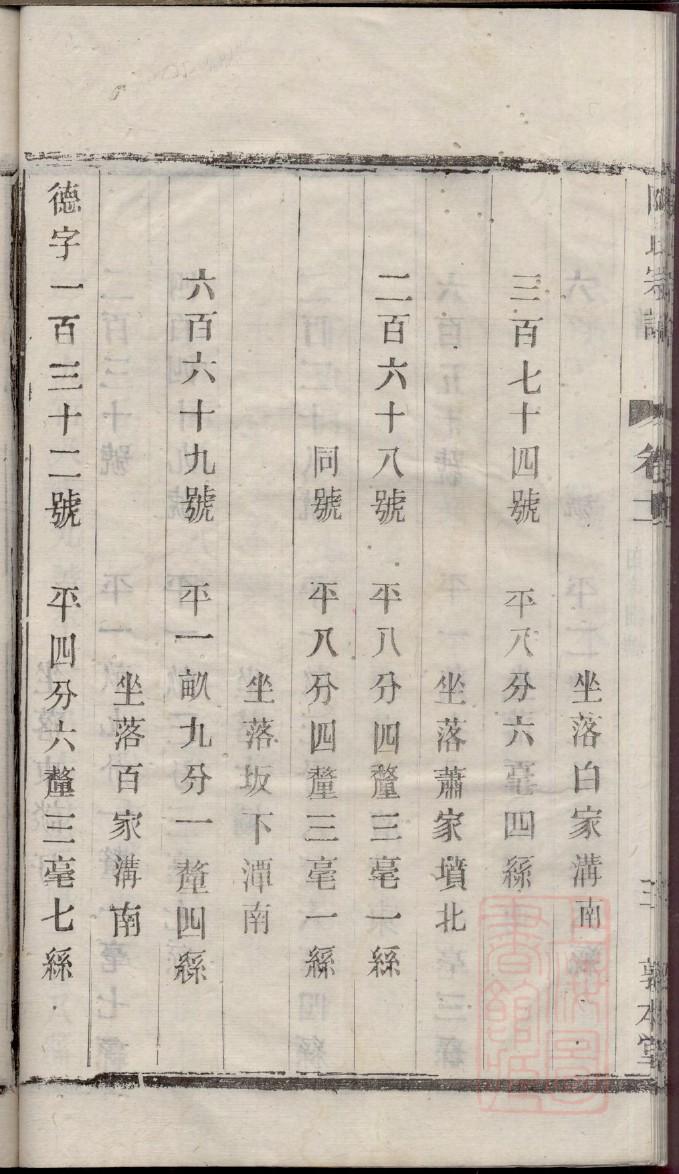 坐落白家溝南
三百七十四號 平八分六毫四絲
坐落蕭家墳北
二百六十八號 平八分四釐三毫一絲
同號 平八分四釐三毫一絲
坐落坂下潭南
六百六十九號 平一畝九分一釐四絲
坐落百家溝南
德字一百三十二號 平四分六釐三毫七絲